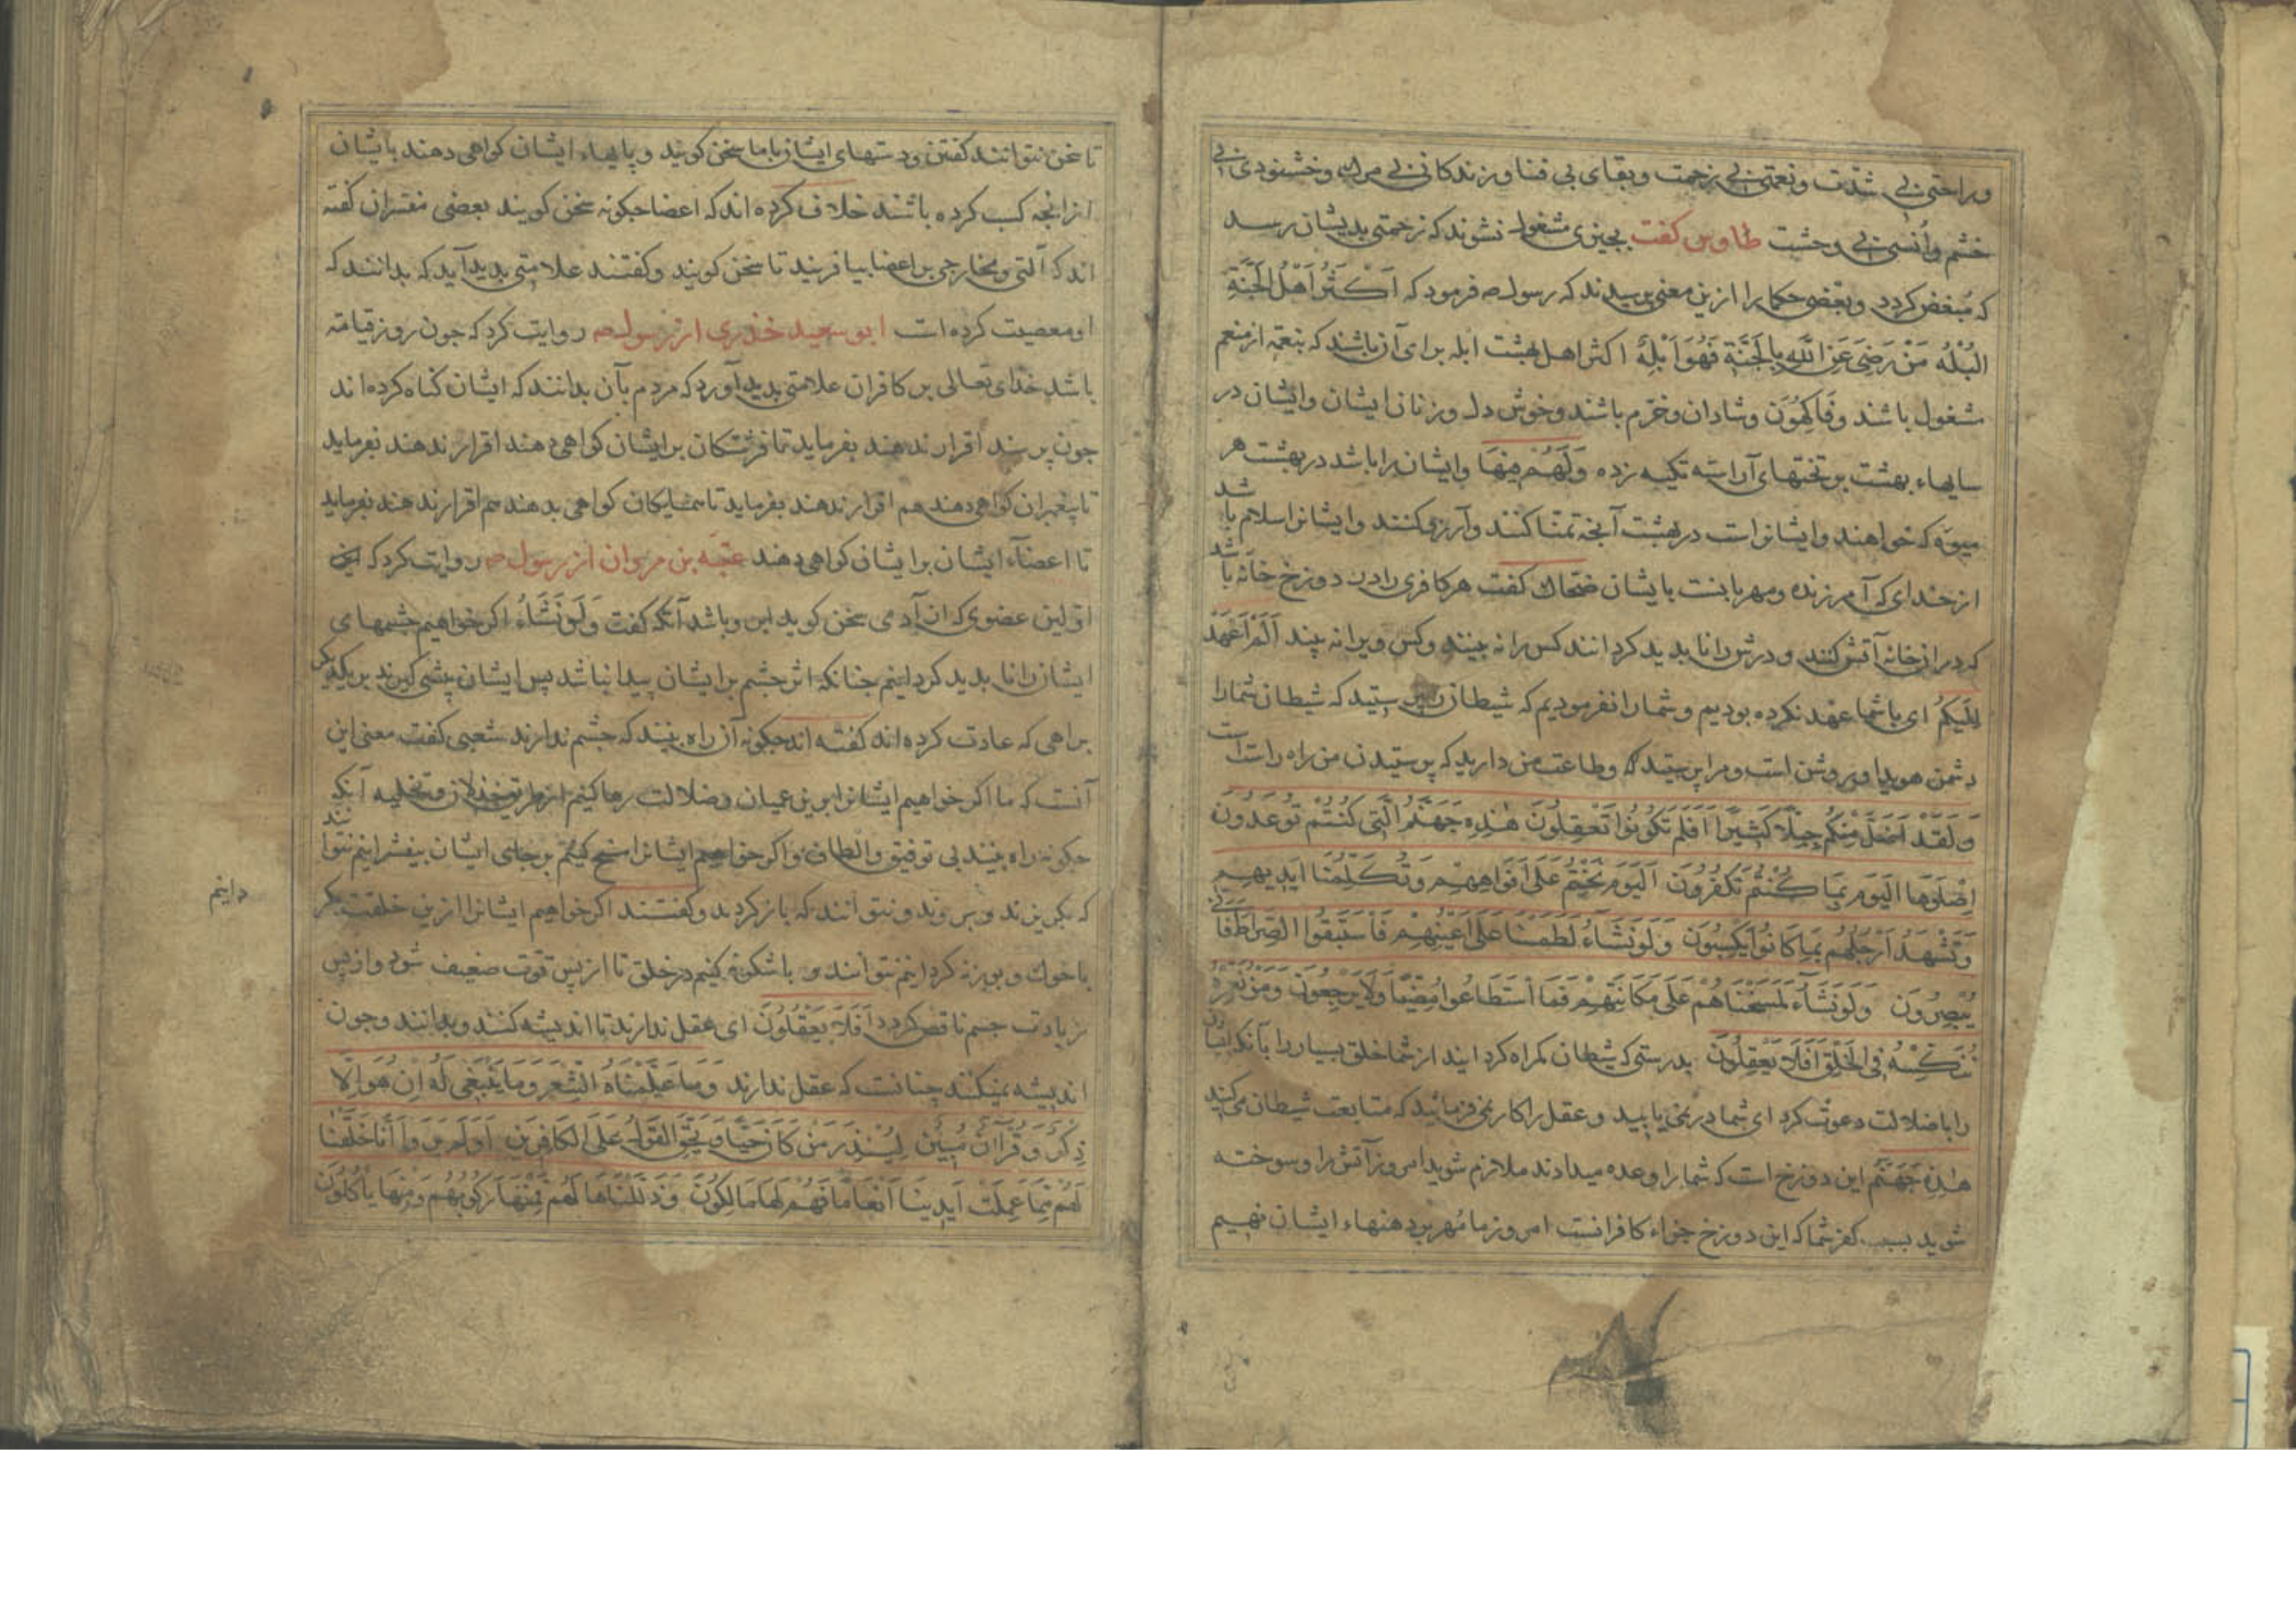 وراحتی بی شدّت ونعمتی بی زحمت وبقای بی فنا وزندکانی بی مرك وخشنودی بی
خشم واُنسی بی وحشت طاوس کفت بچیزی مشغول نشوند که زحمتی بدیشان رسد
که مُبغض کردد وبعضی حکما را ازین معنی پرسیدند که رسول ص فرمود که اَکْثَرُ اَهْلُ الجَنَّةِ
البُلْهُ مَنْ رَضِیَ عَنِ اللّٰهِ بِالجَنَّةِ فَهُوَ اَبْلِهٌ اکثر اهل بهشت ابله برای آن باشند که بنعمة از منعم
مشغول باشند وفَاکِهُوَن وشادان وخرّم باشند وخوش دل وزنان ایشان وایشان در
سایهاء بهشت بر تختهای آراسته تکیه زده وَلَهُمْ فِیْهَا وایشان را باشد در بهشت هر
میوۀ که خواهند وایشانراست در بهشت آنچه تمنّا کنند وآرزی کنند وایشانرا سلام باشد
از خدای که آمرزنده ومهربانست بایشان ضحاك کفت هر کافری را در دوزخ خانۀ باشد
که در ان خانه آتش کنند ودرش را نا بدید کردانند کس را نه بینند وکس ویرا نه بیند اَلَمْ اَعْهَدْ
اِلَیْکُمْ ای با شما عهد نکرده بودیم وشما را نفرمودیم که شیطان را نپرستید که شیطان شما را
دشمن هویدا وروشن است ومرا پرستید که وطاعت من دارید که پرستیدن من راه راست است
وَلَقَدْ اَضَلَّ مِنْکُمْ جِبِلّاً کَثِیْرًا اَفَلَمْ تَکُونُوْا تَعْقِلُونَ هٰذِهِ جَهَنَّمُ الَّتِی کُنْتُمْ تُوعَدُونَ
اِصْلَوْهَا الْیَوْمَ بِمَا کُنْتُمْ تَکْفُرُونَ اَلْیَوْمَ نَخْتِمُ عَلَی اَفْوَاهِهِمْ وَتُکَلِّمُنَا اَیْدِیهِمْ
وَتَشْهَدُ اَرْجُلُهُمْ بِمَا کَانُوْا یَکْسِبُوْنَ وَلَوْ نَشَاءُ لَطَمَسْنَا عَلَی اَعْیُنِهِمْ فَاسْتَبَقُوا الصِّرَاطَ فَاَنّٰی
یُبْصِرُونَ وَلَوْ نَشَاءُ لَمَسَخْنَاهُمْ عَلَی مَکَانَتِهِمْ فَمَا اسْتَطَاعُوا مُضِیًّا وَلَا یَرْجِعُونَ وَمَنْ نُعَمِّرْهُ
نُنَکِّسْهُ فِی الْخَلْقِ اَفَلَا یَعْقِلُونَ بدرستی که شیطان کمراه کردانید از شما خلق بسیار را بآنکه ایشان
را باضلالت دعوت کرد ای شما در نمی یابید وعقل را کار نمی فرمائید که متابعت شیطان می کنید
هٰذِهِ جَهَنَّمُ این دوزخ است که شما را وعده میدادند ملازم شوید امروز آتش را وسوخته
شوید بسبب کفر شما که این دوزخ جزاء کافرانست امروز ما مُهر بر دهنهاء ایشان نهیم
تا سخن نتوانند کفتن ودستهای ایشان با ما سخن کویند وپایهاء ایشان کواهی دهند بایشان
از انچه کسب کرده باشند خلاف کرده اند که اعضا چکونه سخن کویند بعضی مفسران کفته
اند که آلتی ومخارجی بر اعضا بیافریند تا سخن کویند وکفتند علامتی بدید آید که بدانند که
او معصیت کرده است ابو سعید خذری از رسول ص روایت کرد که جون روز قیامة
باشد خدای تعالی بر کافران علامتی بدید آورد که مردم بآن بدانند که ایشان کناه کرده اند
جون پرسند اقرار ندهند بفرماید تا فرشتکان بر ایشان کواهی دهند اقرار ندهند بفرماید
تا پیغمبران کواهی دهند هم اقرار ندهند بفرماید تا همسایکان کواهی بدهند هم اقرار ندهند بفرماید
تا اعضآء ایشان بر ایشان کواهی دهند عتبه بن مروان از رسول ص روایت کرد که
اولین عضوی که از آدمی سخن کوید این وباشد آنکه کفت وَلَوْ نَشَاءُ اکر خواهیم جشمهای
ایشان را نا بدید کردانیم جنانکه اثر جشم بر ایشان پیدا نباشد پس ایشان پیشی کیرند بر یکدیکر
براهی که عادت کرده اند کفته اند جکونه آن راه بینند که جشم ندارند شعبی کفت معنی این
آنست که ما اکر خواهیم ایشانرا برین عمیان وضلالت رها کنیم از طریق خذلان وتخلیه آنکه
جکونه راه بینند بی توفیق والطاف واکر خواهیم ایشانرا مسخ کنیم بر جای ایشان بیفشرانیم نتوانند
که بکریزند وبروند ونتوانند که باز کردند وکفتند اکر خواهیم ایشانرا ازین خلقت بکر
دانیم
باخوك وبوزنه کردانیم نتوانند و باشکونه کنیم در خلق تا از پس قوت ضعیف شود واز پس
زیادت جسم ناقص کردد اَفَلَا یَعْقِلُوْنَ ای عقل ندارند تا اندیشه کنند وبدانند وجون
اندیشه نمیکنند چنانست که عقل ندارند وَمَا عَلَّمْنَاهُ الشِّعْرَ وَمَا یَنْبَغِی لَهُ اِنْ هُوَ اِلَّا
ذِکْرٌ وَقُرْآنٌ مُبِیْنٌ لِیُنْذِرَ مَنْ کَانَ حَیًّا وَیَحِقَّ القَوْلُ عَلَی الکَافِرِیْنَ اَوَلَمْ یَرَوْا اَنَّا خَلَقْنَا
لَهُمْ مِمَّا عَمِلَتْ اَیْدِیْنَا اَنْعَامًا فَهُمْ لَهَا مَالِکُوْنَ وَذَلَّلْنَاهَا لَهُمْ فَمِنْهَا رَکُوبُهُمْ وَمِنْهَا یَأکُلُوْنَ